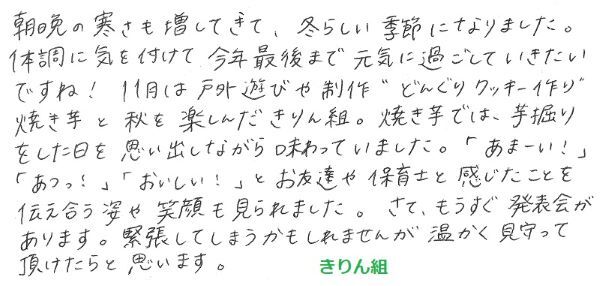 朝晩の寒さも増してきて、冬らしい季節になりました。
体調に気を付けて今年最後まで元気に過ごしていきたい
ですね！ 11月は戸外遊びや制作〝どんぐりクッキー作り〟
焼き芋と秋を楽しんだきりん組。焼き芋では、芋掘り
をした日を思い出しながら味わっていました。「あまーい！」
「あつっ！」「おいしい！」とお友達や保育士と感じたことを
伝え合う姿や笑顔も見られました。さて、もうすぐ発表会が
あります。緊張してしまうかもしれませんが温かく見守って
頂けたらと思います。 きりん組